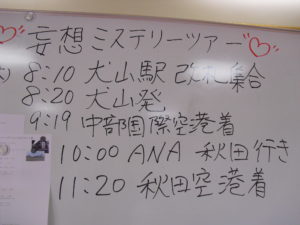 妄想ミステリーツアー
8:10 犬山駅 改札集合
8:20 犬山発
9:19 中部国際空港着
10:00 ANA 秋田行き
11:20 秋田空港着